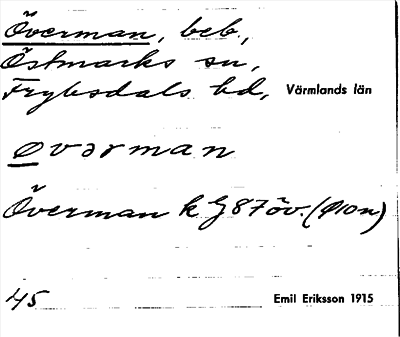 Överman, beb.,
Östmarks sn,
Fryksdals hd, Värmlands län
øvərman
Överman k G 87 öv. (Ø10n)
45 Emil Eriksson 1915